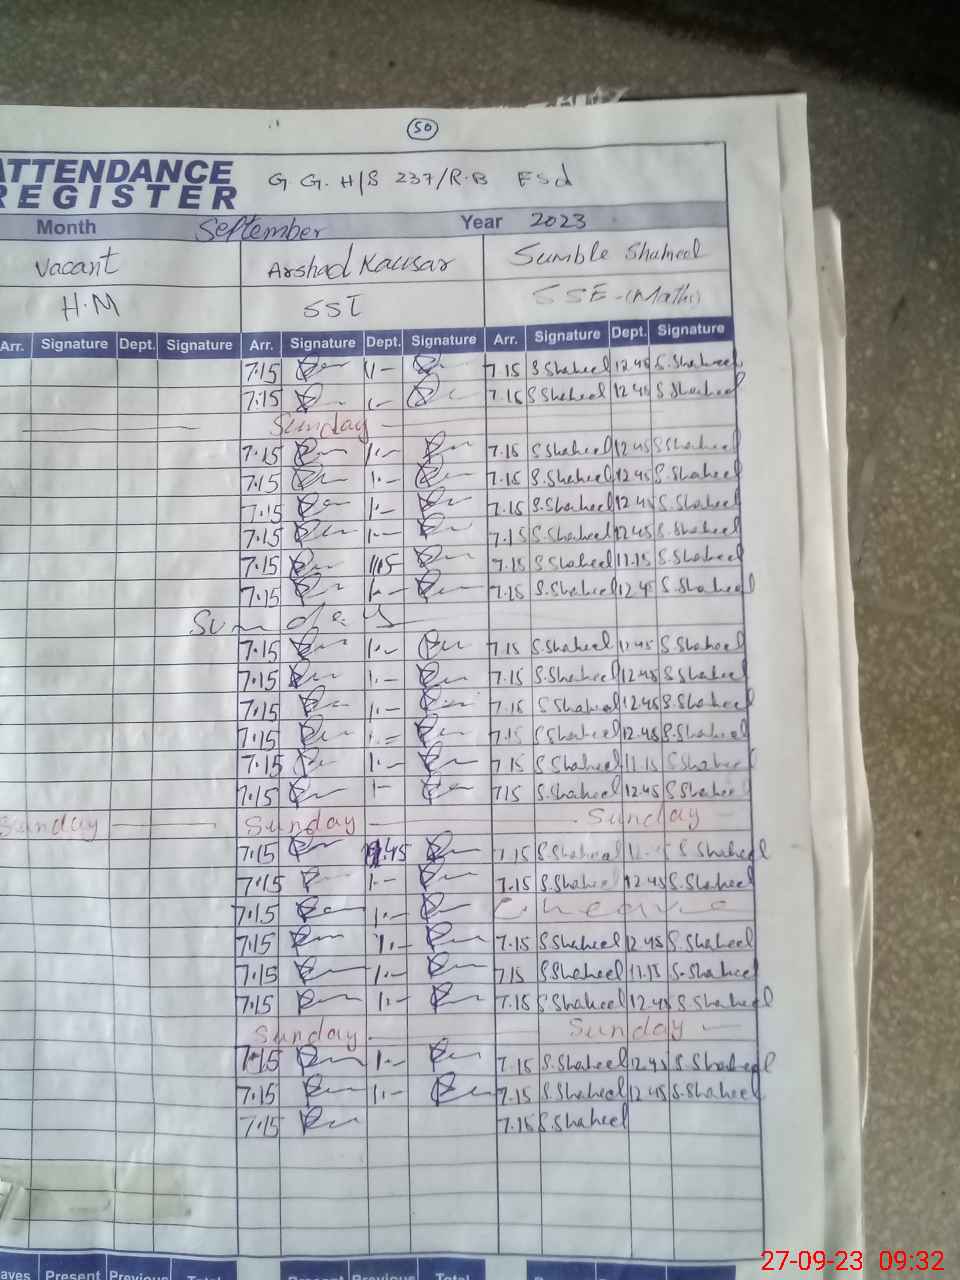 50
ATTENDANCE G G. H/S 237/R.B Fsd
REGISTER
Month September Year 2023
Vacant Arshad Kausar Sumble Shaheel
H.M SST SSE-(Maths)
Arr. Signature Dept. Signature Arr. Signature Dept. Signature Arr. Signature Dept. Signature
7.15 1- 7.15 S Shaheel 12 45 S.Shaheel
7.15 1- 7.15 S Shaheel 12 45 S Shaheel
Sunday
7.15 1- 7.15 S Shaheel 12 45 S Shaheel
7.15 1- 7.15 S.Shaheel 12 45 S.Shaheel
7.15 1- 7.15 S.Shaheel 12 45 S.Shaheel
7.15 1- 7.15 S.Shaheel 12 45 S.Shaheel
7.15 11.15 7.15 S Shaheel 11.15 S.Shaheel
7.15 1- 7.15 S.Shaheel 12 45 S.Shaheel
Sunday
7.15 1- 7.15 S.Shaheel 12 45 S.Shaheel
7.15 1- 7.15 S.Shaheel 12 45 S Shaheel
7.15 1- 7.15 S Shaheel 12.45 S.Shaheel
7.15 1- 7.15 S Shaheel 12.45 S.Shaheel
7.15 1- 7.15 S Shaheel 11.15 S Shaheel
7.15 1- 7.15 S.Shaheel 12.45 S Shaheel
Sunday Sunday Sunday
7.15 .45 7.15 S.Shaheel S Shaheel
7.15 1- 7.15 S.Shaheel 12 45 S.Shaheel
7.15 1- C. Leave
7.15 1- 7.15 S Shaheel 12.45 S.Shaheel
7.15 1- 7.15 S Shaheel 11.15 S.Shaheel
7.15 1- 7.15 S.Shaheel 12.45 S.Shaheel
Sunday Sunday
7.15 1- 7.15 S.Shaheel 12.45 S.Shaheel
7.15 1- 7.15 S.Shaheel 12 45 S.Shaheel
7.15 7.15 S.Shaheel
Present Previous Total Present Previous Total
27-09-23 09:32